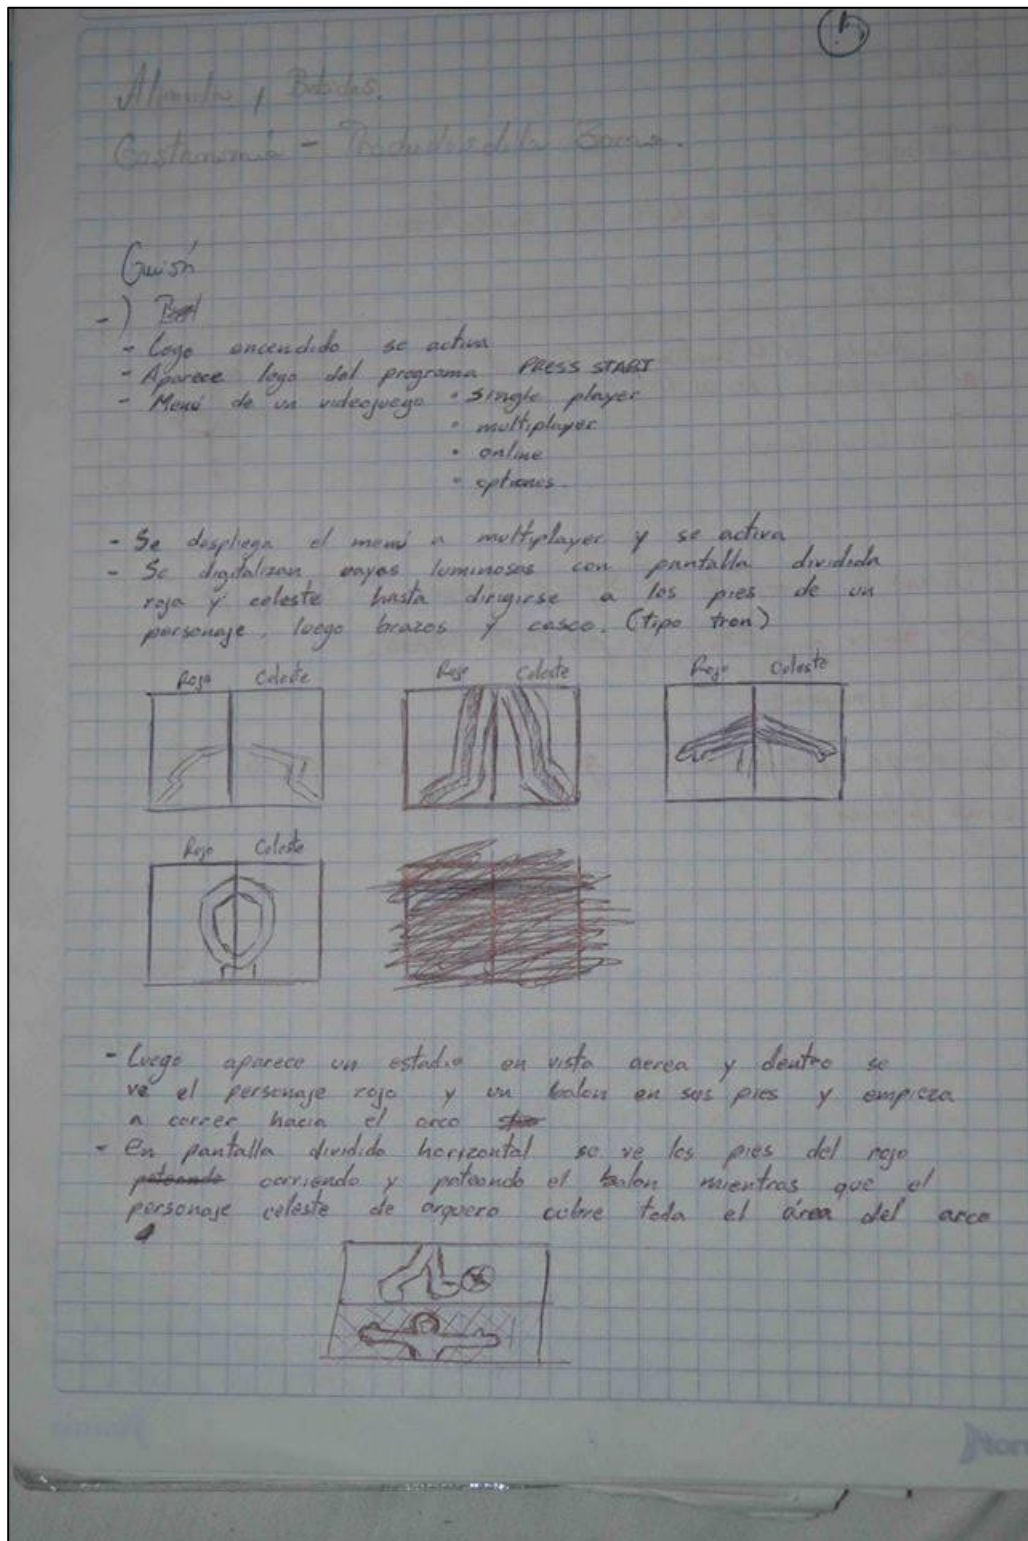 1
Alimentos y Bebidas.
Gastronomía - Productos de la Zona.
Guión
-)
- Logo encendido se activa
- Aparece logo del programa PRESS START
- Menú de un videojuego • Single player
• multiplayer
• online
• options
- Se despliega el menú a multiplayer y se activa
- Se digitalizan rayos luminosos con pantalla dividida
roja y celeste hasta dirigirse a los pies de un
personaje, luego brazos y casco. (tipo tron)
Rojo Celeste Rojo Celeste Rojo Celeste
Rojo Celeste
- Luego aparece un estadio en vista aerea y dentro se
ve el personaje rojo y un balon en sus pies y empieza
a correr hacia el arco
- En pantalla dividido horizontal se ve los pies del rojo
pateando corriendo y pateando el balon mientras que el
personaje celeste de arquero cubre toda el área del arco
Nor